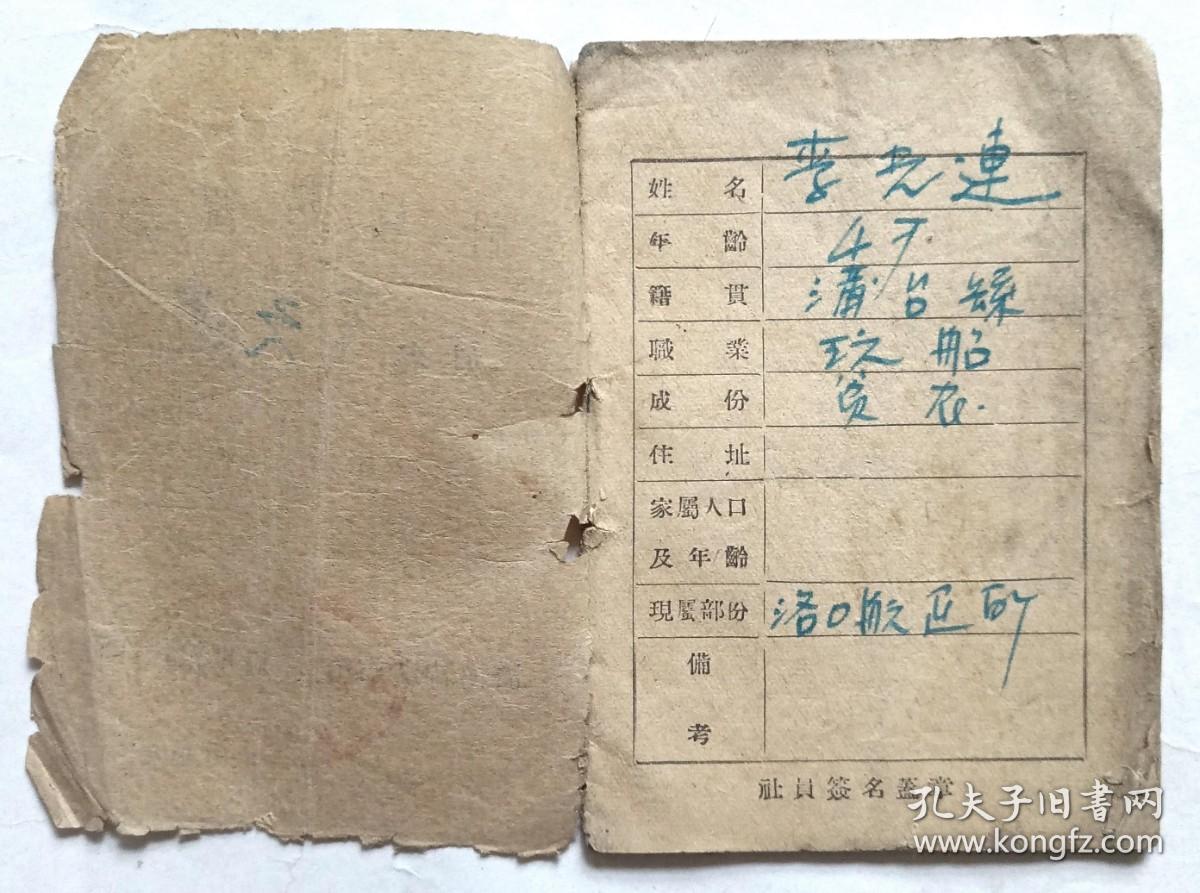 姓名 李光連
年齡 47
籍貫 蒲台縣
職業 玩船
成份 贫农.
住址
家屬人口
及年齡
現屬部份 洛口航运所
備
考
社員簽名蓋章
孔夫子旧書网
www.kongfz.com